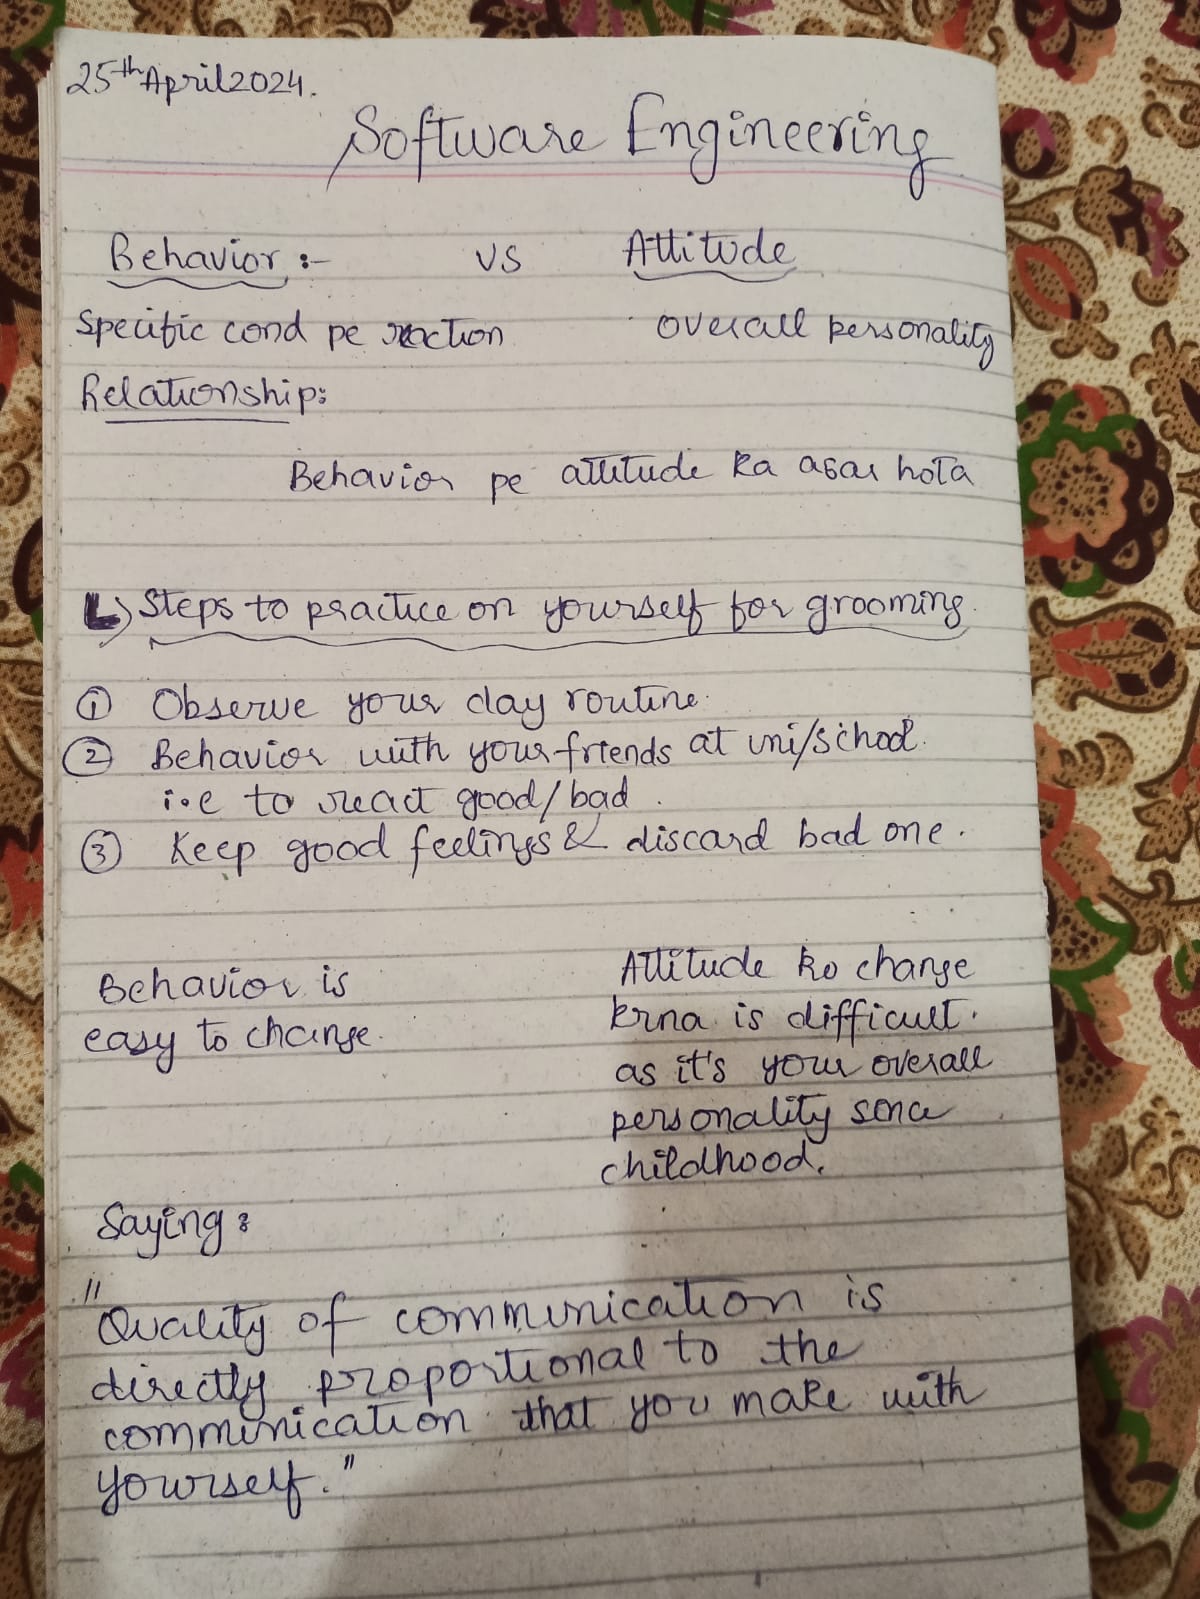 25th April 2024.
Software Engineering
Behavior :- vs Attitude
Specific cond pe reaction overall personality
Relationship:
Behavior pe attitude ka asar hota
L) Steps to practice on yourself for grooming.
① Observe your day routine.
② Behavior with your friends at uni/school.
i.e to react good/bad.
③ Keep good feelings & discard bad one.
Behavior is
easy to change.
Attitude ko change
krna is difficult.
as it's your overall
personality sence
childhood.
Saying:
"Quality of communication is
directly proportional to the
communication that you make with
yourself."